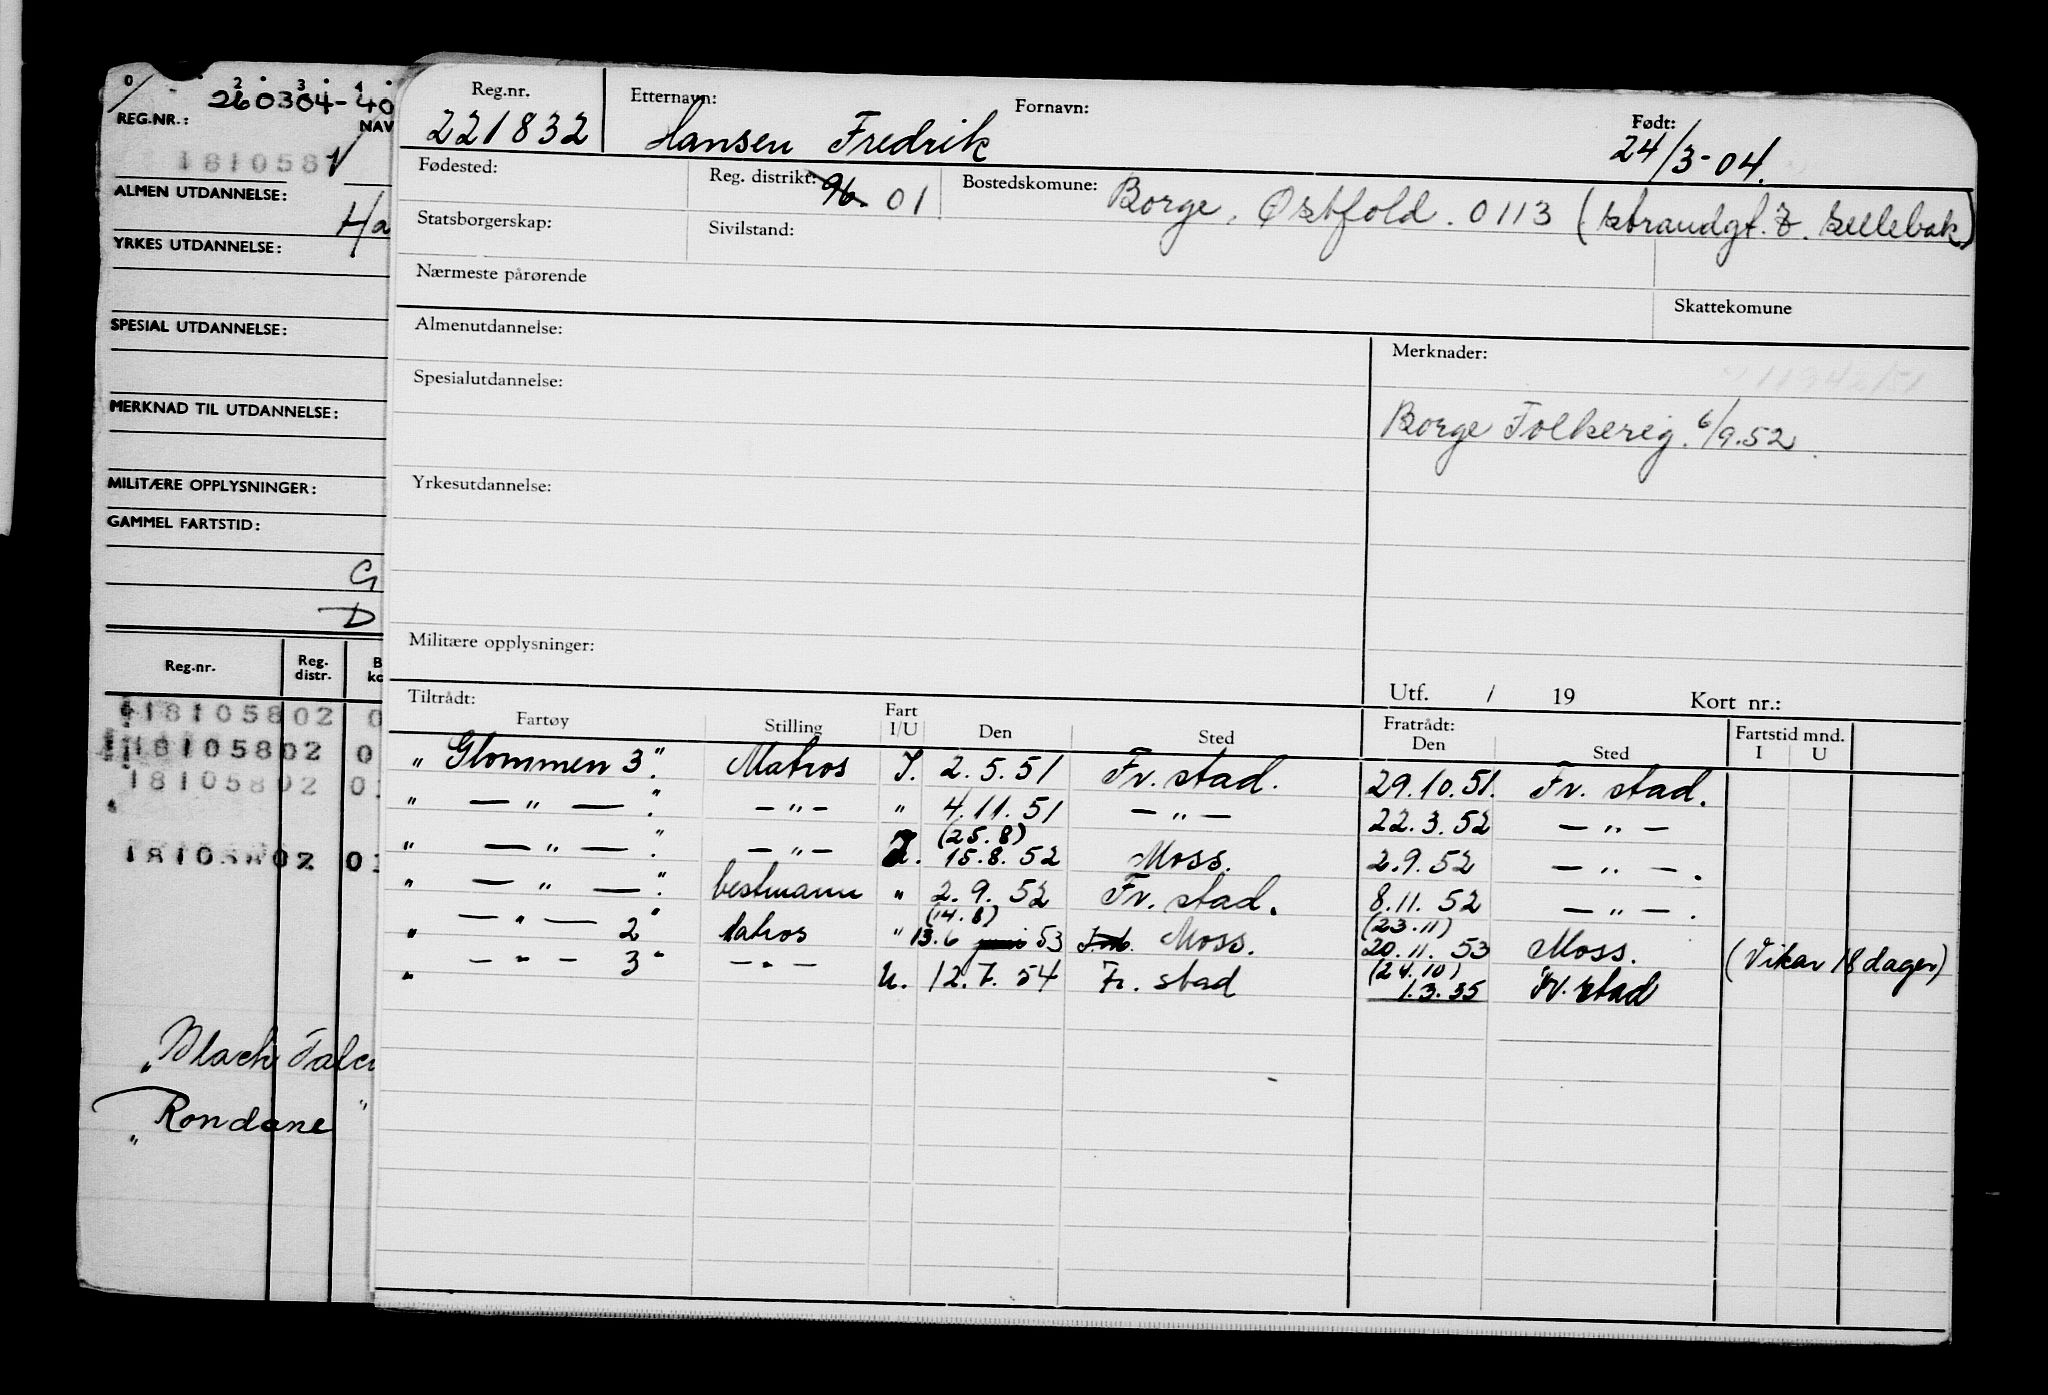 0 2 3 4
260304-40
REG.NR.: NAV
1810581
ALMEN UTDANNELSE:
Ha
YRKES UTDANNELSE:
SPESIAL UTDANNELSE:
MERKNAD TIL UTDANNELSE:
MILITÆRE OPPLYSNINGER:
GAMMEL FARTSTID:
G
D
Reg.nr. Reg. distr. B ko
18105802 0
18105802 0
18105802 01
18105802 01
" Black Falc
" Rondane "
Reg.nr. Etternavn: Fornavn: Født:
221832 Hansen Fredrik 24/3-04.
Fødested: Reg. distrikt: 96. 01 Bostedskomune: Borge, Østfold. 0113 (Strandgt. 7. Sellebak)
Statsborgerskap: Sivilstand:
Nærmeste pårørende Skattekomune
Almenutdannelse: Merknader:
Spesialutdannelse:
Borge Folkereg. 6/9.52.
Yrkesutdannelse:
Militære opplysninger:
Utf. / 19 Kort nr.:
Tiltrådt: Fratrådt: Fartstid mnd.
Fartøy Stilling Fart I/U Den Sted Den Sted I U
" Glommen 3". Matros I. 2.5.51 Fr. stad. 29.10.51. Fr. stad.
" — " — ". — " — " 4.11.51 — " — 22.3.52 — " —
" — " — ". — " — (25.8) 15.8.52 Moss. 2.9.52 — " — .
" — " — ". bestmann " 2.9.52 Fr. stad. 8.11.52 — " — .
" — " — 2" Matros " (14.8) 13.6 juni 53 Moss. (23.11) 20.11.53 Moss. (Vikar 18 dager)
" — " — 3" — " — U. 12.7.54 Fr. stad (24.10) 1.3.55 Fr. stad